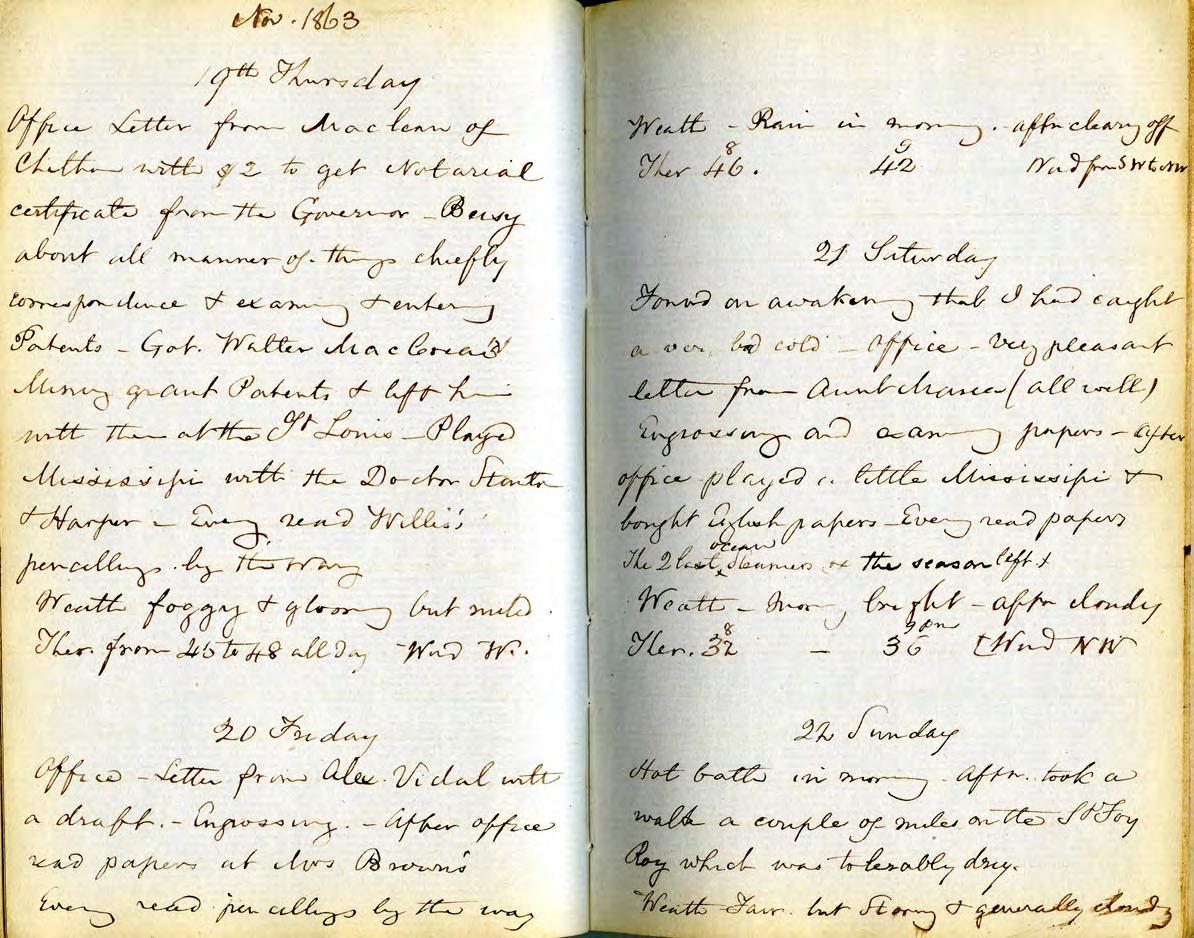 Nov. 1863
19th Thursday
Office Letter from Maclean of
Chatham with $2 to get Notarial
certificate from the Governor - Busy
about all manner of things chiefly
correspondence & examing & entering
Patents - Got Walter
Mining grant Patents & left him
with them at the St Louis - Played
Mississipi with the Doctor Stanton
& Harper - Eveng read Willis's
pencillings by the way
Weath foggy & gloomy but mild.
Ther. from 45 to 48 all day Wind W.
20 Friday
Office - Letter from Alex. Vidal with
a draft. - Engrossing. - After office
read papers at Mrs Brown's
Eveng read pencillings by the way
Weath - Rain in morning. - aftn clearg off
8 9
Ther 46. 42 Wind from SW to NW
21 Saturday
Found on awakening that I had caught
a very bad cold - office - very pleasant
letter from Aunt Maria (all well)
Engrossing and examing papers - After
office played a little Mississipi &
bought English papers - Eveng read papers
ocean
The 2 last steamers of the season left
Weath - Morng bright - aftn cloudy
8 9 pm
Ther. 32 - 36 Wind NW
22 Sunday
Hot bath in morning. Aftn. took a
walk a couple of miles on the St Foy
Roy which was tolerably dry.
Weath Fair. but Stormy & generally cloudy